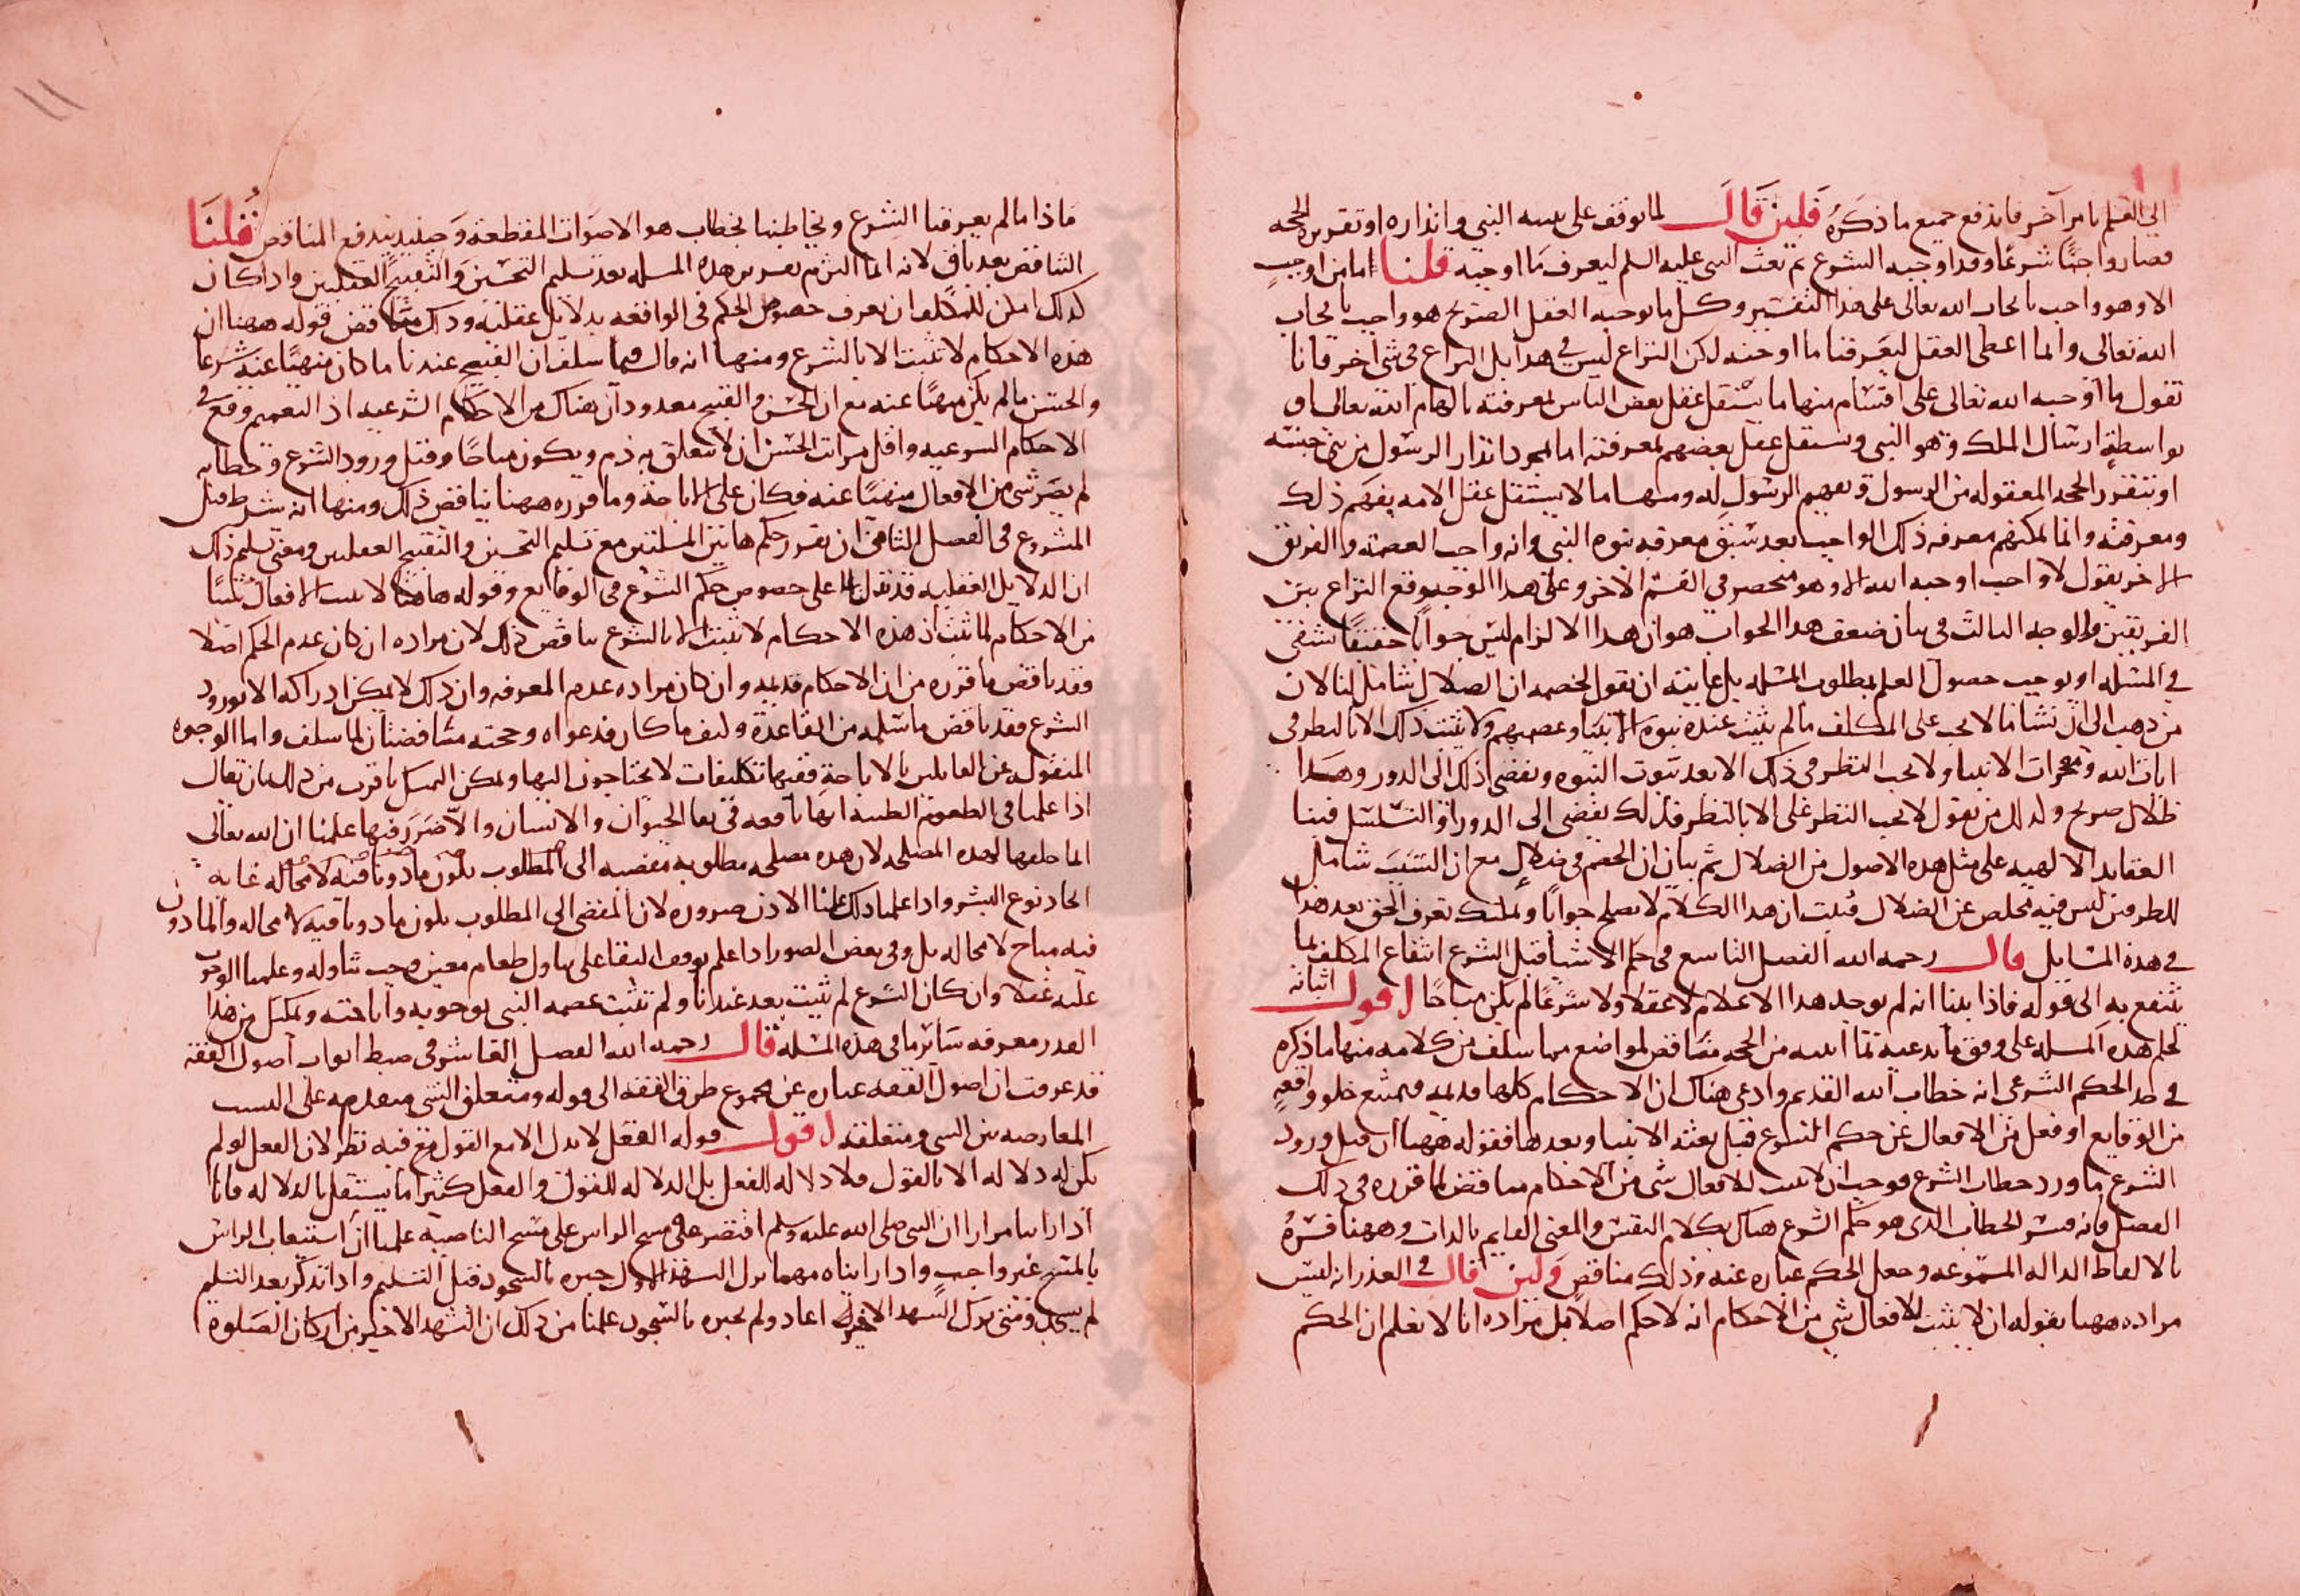 الى العلم بامر آخر فاندفع جميع ما ذكره فلين قال لما توقف على النبى وانذاره او تقرير الحجه
فصار واجبًا شرعًا وقد اوجبه الشرع ثم بعث النبى عليه السلم ليعرف ما اوجبه قلنا اما من اوجب
الا وهو واجب بايجاب الله تعالى على هذا التفسير وكل ما يوجبه العقل الصريح هو واجب بايجاب
الله تعالى وانما اعطى العقل ليعرفنا ما اوجبه لكن النزاع ليس فى هذا بل النزاع فى شى آخر فانا
نقول ما اوجبه الله تعالى على اقسام منها ما يستقل عقل بعض الناس لمعرفته بالهام الله تعالى او
بواسطة ارسال الملك وهو النبى ويستقل عقل بعضهم لمعرفته اما بمجرد انذار الرسول من جنسه
او بتقرر الحجه المعقوله من الرسول وتفهيم الرسول له ومنها ما لا يستقل عقل الامه بفهم ذلك
ومعرفته وانما يمكنهم معرفه ذلك الواجب بعد سبق معرفه نبوه النبى وانه واجب العصمه والفريق
الاخر يقول لا واجب اوجبه الله الا وهو منحصر فى القسم الاخر وعلى هذا الوجه وقع النزاع بين
الفريقين والوجه الثالث فى بيان ضعف هذا الجواب هو ان هذا الالزام ليس جوابا حقيقيًا شفى
فى المسله او يوجب حصول العلم بمطلوب المسله بل غايته ان يقول لخصمه ان الضلال شامل لنا لان
من ذهب الى ان شا ما لا يجب على المكلف ما لم يثبت عنده نبوه الانبيا وعصمتهم ولا يثبت ذلك الا بالنظر فى
ايات الله ومعجزات الانبيا ولا يجب النظر فى ذلك الا بعد ثبوت النبوه ويفضى ذلك الى الدور وهذا
ضلال صريح وكذلك من يقول لا يجب النظر على الا بالنظر فذلك يفضى الى الدور او التسلسل فبنا
العقايد الالهيه على مثل هذه الاصول من الضلال ثم بيان ان الخصم فى ضلال مع ان السبب شامل
للطرفين ليس فيه مخلص عن الضلال فثبت ان هذا الكلام لا يصلح جوابًا ويمكنك تعرف الحق بعد هذا
فى هذه المسايل قال رحمه الله الفصل التاسع فى حكم الاشيا قبل الشرع انتفاع المكلف بما
ينتفع به الى قوله فاذا بينا انه لم يوجد هذا الاعلام لا عقلا ولا شرعًا لم يكن مباحًا اقول اثباته
لحكم هذه المسله على وفق ما يدعيه بما اثبته من الحجه مناقض لمواضع مما سلف من كلامه منها ما ذكره
فى حد الحكم الشرعى انه خطاب الله القديم وادعى هناك ان الاحكام كلها قديمه فيمتنع خلو واقعه
من الوقايع او فعل من الافعال عن حكم الشرع قبل بعثه الانبيا وبعدها فقوله ههنا ان قبل ورود
الشرع ما ورد خطاب الشرع فوجب ان لا يثبت للافعال شى من الاحكام مناقض لما قرره فى ذلك
الفصل فانه فسر الخطاب الذى هو حكم الشرع هناك بكلام النفس والمعنى القايم بالذات وههنا فسره
بالالفاظ الداله المسموعه وجعل الحكم عباره عنه وذلك مناقض ولين قال فى العذر انه ليس
مراده ههنا بقوله ان لا يثبت للافعال شى من الاحكام انه لا حكم اصلا بل مراده انا لا نعلم ان الحكم
ماذا ما لم يعرفنا الشرع ويخاطبنا بخطاب هو الاصوات المقطعة وحينيذ يندفع التناقض قلنا
التناقض بعد باق لانه انما التزم تقرير هذه المسله بعد تسليم التحسين والتقبيح العقليين واذا كان
كذلك امكن للمكلف ان يعرف خصوص الحكم فى الواقعه بدلايل عقليه وذلك مناقض قوله ههنا ان
هذه الاحكام لا تثبت الا بالشرع ومنها انه قال فيما سلف ان القبيح عندنا ما كان منهيًا عنه شرعا
والحسن ما لم يكن منهيًا عنه مع ان الحسن والقبيح معدودان هناك من الاحكام الشرعيه اذ التعميم وقع فى
الاحكام الشرعيه واقل مراتب الحسن ان لا يتعلق به ذم ويكون مباحًا وقبل ورود الشرع وخطابه
لم يصر شى من الافعال منهيًا عنه فكان على الاباحة وما قرره ههنا يناقض ذلك ومنها انه شرط قبل
المشروع فى الفصل الثامن ان يقرر حكم هاتين المسلتين مع تسليم التحسين والتقبيح العقليين ومعنى تسليم ذلك
ان الدلايل العقليه قد تدل على خصوص حكم الشرع فى الوقايع وقوله هاهنا لا يثبت الافعال شيًا
من الاحكام لما ثبت ان هذه الاحكام لا تثبت الا بالشرع يناقض ذلك لان مراده ان كان عدم الحكم اصلا
فقد ناقض ما قرره من ان الاحكام قديمه وان كان مراده عدم المعرفه وان ذلك لا يمكن ادراكه الا بورود
الشرع فقد ناقض ما سلمه من القاعدة وكيف ما كان فدعواه وحجته متناقضتان لما سلف واما الوجوه
المنقوله عن القايلين بالاباحة ففيها تكليفات لا يحتاجون اليها ويمكن التمسك باقرب من ذلك بان يقال
اذا علمنا فى الطعوم الطيبه انها نافعه فى بقا الحيوان والانسان ولا ضرر فيها علمنا ان الله تعالى
انما خلقها لهذه المصلحه لان هذه مصلحه مطلوبه مفضيه الى المطلوب يكون ماذونا فيه لا محاله غايه
اتحاد نوع البشر واذا علمنا ذلك علمنا الاذن ضروره لان المفضى الى المطلوب يكون ماذونا فيه لا محاله والماذون
فيه مباح لا محاله بل وفى بعض الصور اذا علم توقف البقا على تناول طعام معين وجب تناوله وعلمنا الوجوب
عليه عقلا وان كان الشرع لم يثبت بعد عندنا ولم تثبت عصمه النبى بوجوبه واباحته ويمكنك من هذا
القدر معرفه ساير ما فى هذه المسله قال رحمه الله الفصل العاشر فى ضبط ابواب اصول الفقه
قد عرفت ان اصول الفقه عباره عن مجموع طرق الفقه الى قوله ومتعلق الشى متقدمه على النسب
المعارضه بين الشى ومتعلقه اقول قوله الفعل لا يدل الا مع القول فيه نظر لان الفعل لو لم
يكن له دلاله الا بالقول فلا دلاله للفعل بل الدلاله للقول والفعل كثيرا ما يستقل بالدلاله فانا
اذا راينا مرارا ان النبى صلى الله عليه وسلم اقتصر على مسح الراس على مسح الناصيه علمنا ان استيعاب الراس
بالمسح غير واجب واذا رايناه مهما ترك التشهد الاول جبره بالسجود قبل التسليم واذا تذكر بعد التسلم
لم يسجد ومتى ترك التشهد الاخير اعاد ولم يجبره بالسجود علمنا من ذلك ان التشهد الاخير من اركان الصلوة